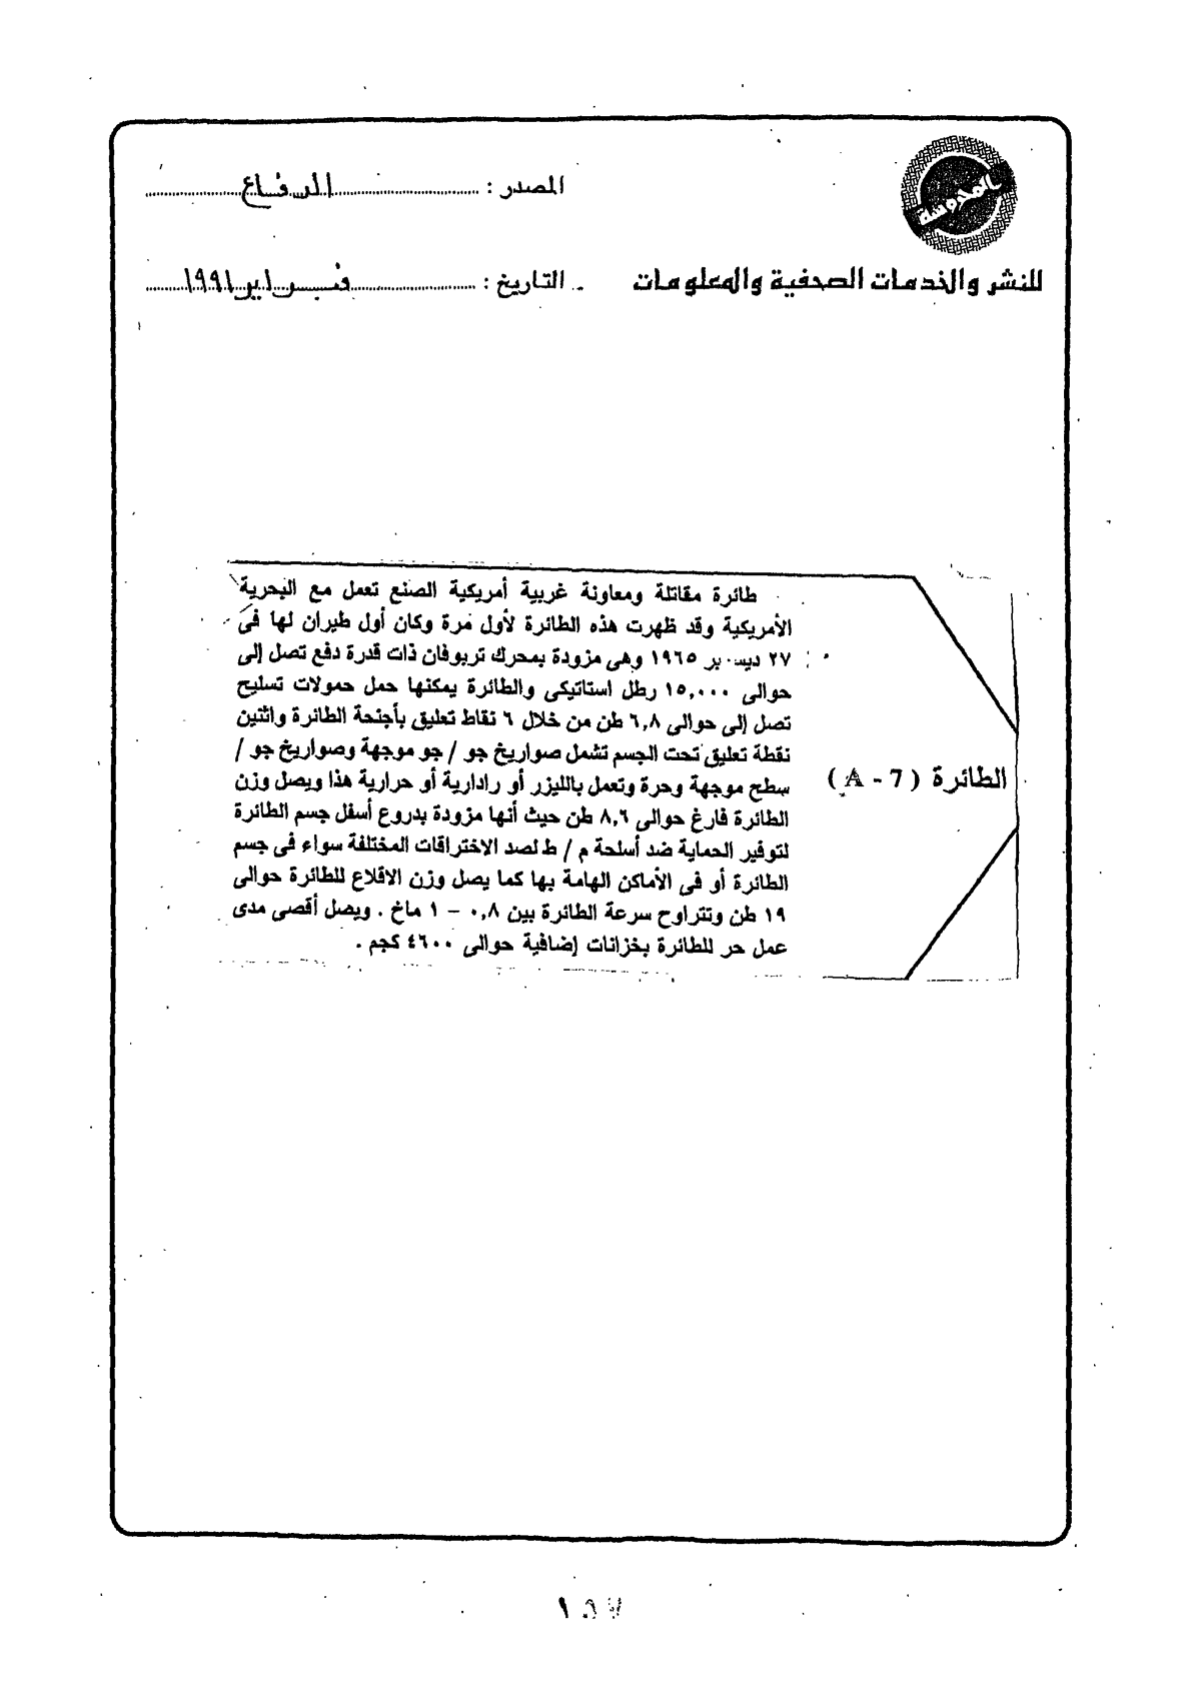 المصدر : الدفاع
للنشر والخدمات الصحفية والمعلومات
التاريخ : فبراير ١٩٩١
طائرة مقاتلة ومعاونة غربية أمريكية الصنع تعمل مع البحرية
الأمريكية وقد ظهرت هذه الطائرة لأول مرة وكان أول طيران لها فى
٢٧ ديسمبر ١٩٦٥ وهى مزودة بمحرك تربوفان ذات قدرة دفع تصل إلى
حوالى ١٥,٠٠٠ رطل استاتيكى والطائرة يمكنها حمل حمولات تسليح
تصل إلى حوالى ٦,٨ طن من خلال ٦ نقاط تعليق بأجنحة الطائرة واثنتين
نقطة تعليق تحت الجسم تشمل صواريخ جو / جو موجهة وصواريخ جو /
سطح موجهة وحرة وتعمل بالليزر أو رادارية أو حرارية هذا ويصل وزن
الطائرة فارغ حوالى ٨,٦ طن حيث أنها مزودة بدروع أسفل جسم الطائرة
لتوفير الحماية ضد أسلحة م / ط لصد الاختراقات المختلفة سواء فى جسم
الطائرة أو فى الأماكن الهامة بها كما يصل وزن الاقلاع للطائرة حوالى
١٩ طن وتتراوح سرعة الطائرة بين ٠,٨ – ١ ماخ . ويصل أقصى مدى
عمل حر للطائرة بخزانات إضافية حوالى ٤٦٠٠ كجم .
الطائرة ( A - 7 )
١٥٧